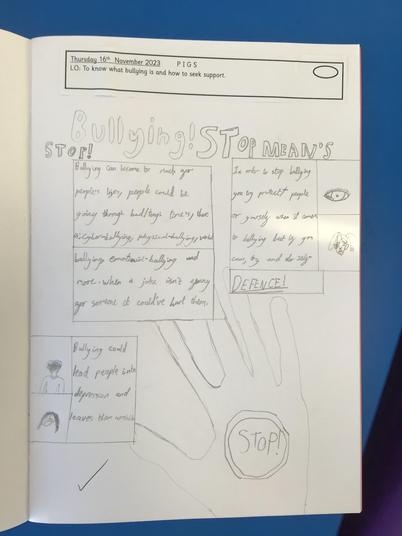 Thursday 16th November 2023 PIGS
LO: To know what bullying is and how to seek support.
Bullying! STOP MEAN'S
STOP!
Bullying can become to much for
peoples lives, people could be
going through bad/tough times, there
is cyber-bullying, physical-bullying, verbal
bullying, emotional-bullying and
more. when a joke isn't funny
for someone it could've hurt them.
In order to stop bullying
you try protect people
or yourself when it comes
to bullying best by you
can, try and do self
DEFENCE!
Bullying could
lead people into
depression and
leaves them
STOP!